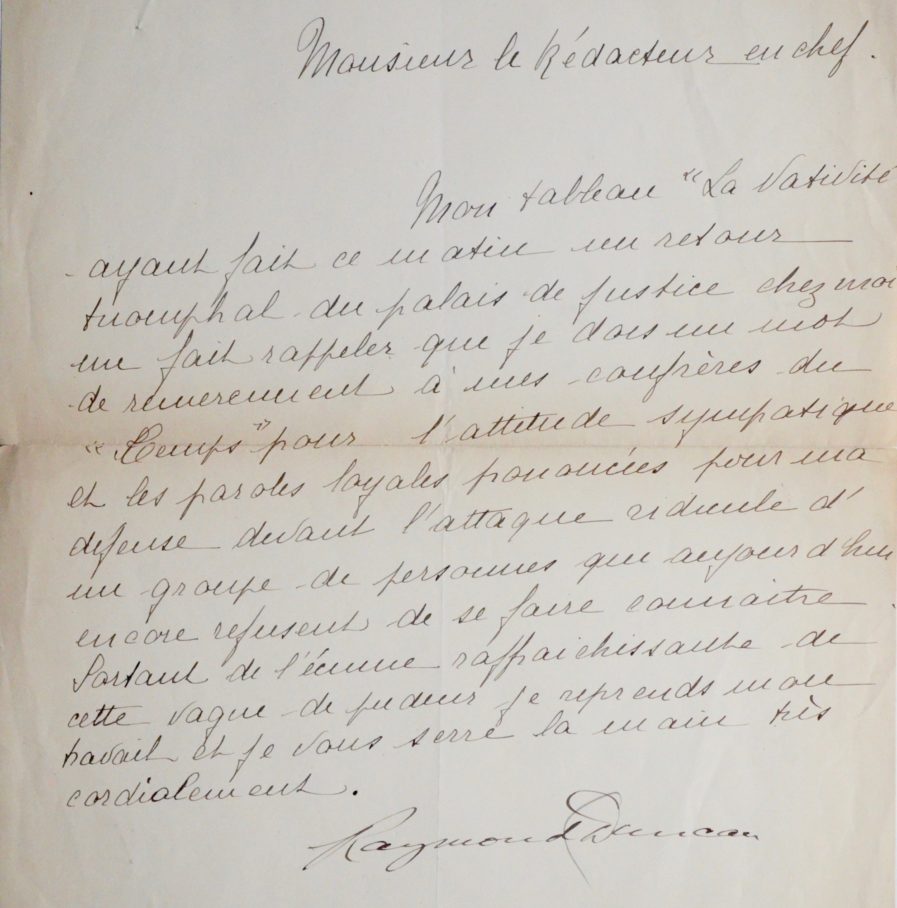 Monsieur le Rédacteur en chef.
Mon tableau "La Nativité
ayant fait ce matin un retour
triomphal du palais de justice chez moi
me fait rappeler que je dois un mot
de remerciment à mes confrères du
"Temps" pour l'attitude sympatique
et les paroles loyales prononcées pour ma
defense devant l'attaque ridicule d'
un groupe de personnes qui aujourd'hui
encore refusent de se faire connaitre.
Sortant de l'écume raffraichissante de
cette vague de pudeur je reprends mon
travail et je vous serre la main très
cordialement.
Raymond Duncan